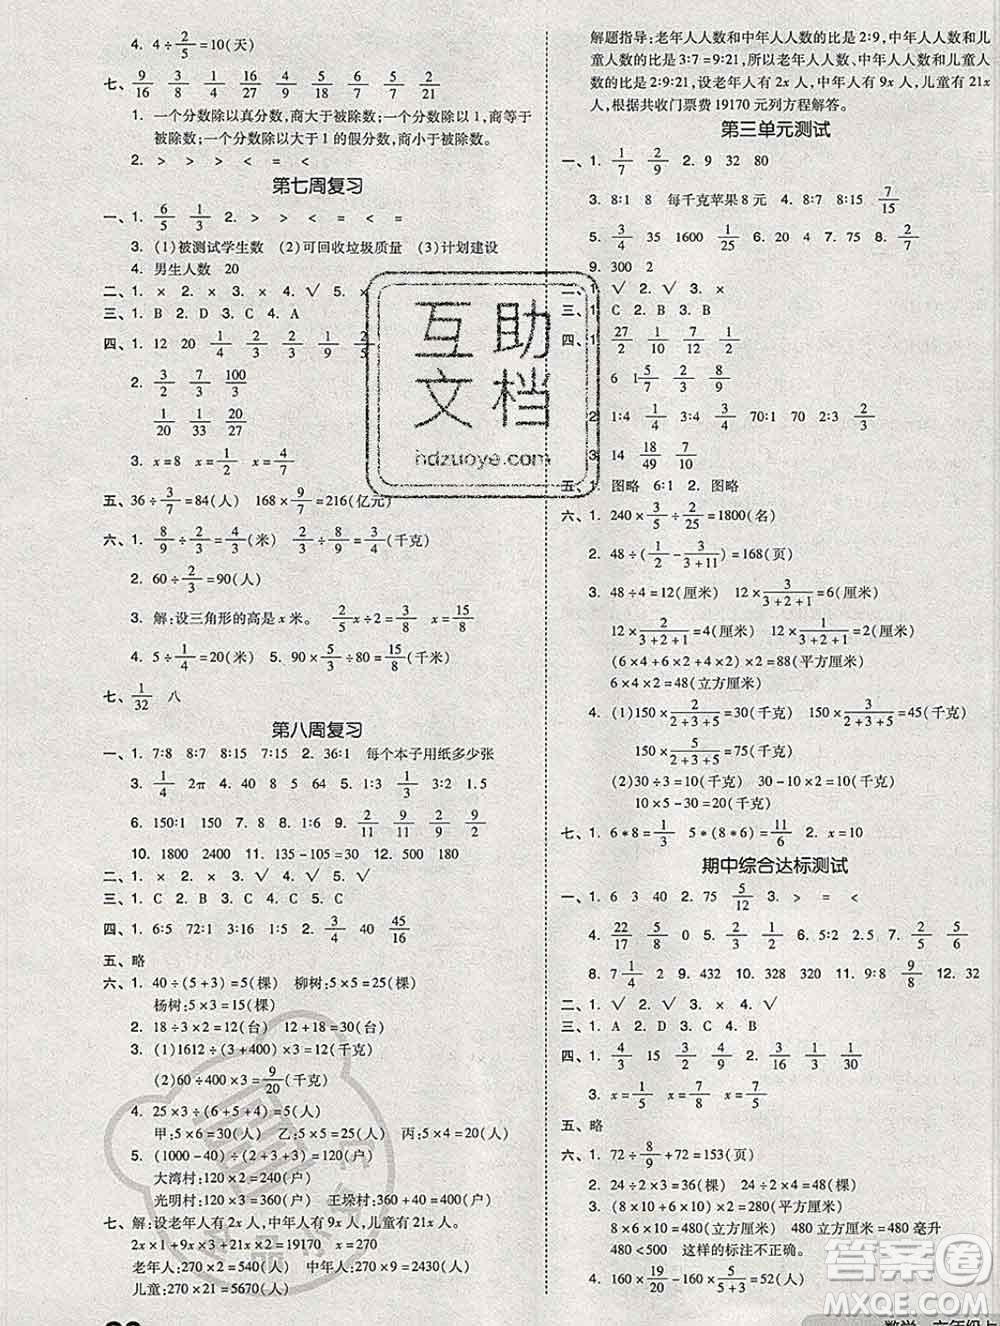 4. 4÷2/5=10(天)
七、9/16 3/8 4/16 16/27 4/9 6/5 2/7 2/21
1. 一个分数除以真分数,商大于被除数;一个分数除以1,商等于
被除数;一个分数除以大于1的假分数,商小于被除数。
2. > > > < = <
第七周复习
一、1. 6/5 1/3 2. > > < < = =
3. (1)被测试学生数 (2)可回收垃圾质量 (3)计划建设
4. 男生人数 20
二、1. × 2. × 3. × 4. √ 5. ×
三、1. B 2. D 3. C 4. A
四、1. 12 20 1/4 2/3 1/9 1/3 8/9
2. 3/2 7/2 100/3
1/20 1/21 20/27
3. x=8 x=1/4 x=4/7
五、36÷3/7=84(人) 168×9/7=216(亿元)
六、1. 8/9÷2/3=4/3(米) 2/3÷8/9=3/4(千克)
2. 60÷2/3=90(人)
3. 解:设三角形的高是x米。 2/5x÷2=3/8 x=15/8
4. 5÷1/4=20(米) 5. 90×5/3÷80=15/8(千米)
七、1/32 八
第八周复习
一、1. 7:8 8:7 8:15 7:15 2. 36:1 每个本子用纸多少张
3. 1/4 2π 4. 40 8 5 64 5. 1:3 1/3 3:2 3/2
6. 150:1 150 7. 8 8. 1:6 9. 2/11 9/11 2/9 9/2
10. 1800 2400 11. 135-105=30 12. 48
二、1. × 2. × 3. √ 4. √ 5. √
三、1. C 2. B 3. C 4. C 5. B
四、1. 6:5 72:1 3:16 1:5 2. 3/4 40 45/16
五、略
六、1. 40÷(5+3)=5(棵) 柳树:5×5=25(棵)
杨树:5×3=15(棵)
2. 18÷3×2=12(台) 12+18=30(台)
3. (1)1612÷(3+400)×3=12(千克)
(2)60÷400×3=9/20(千克)
4. 25×3÷(6+5+4)=5(人)
甲:5×6=30(人) 乙:5×5=25(人) 丙:5×4=20(人)
5. (1000-40)÷(2+3+3)=120(户)
大湾村:120×2=240(户)
光明村:120×3=360(户) 王垛村:120×3+40=400(户)
七、解:设老年人有2x人,中年人有9x人,儿童有21x人。
2x×1+9x×3+21x×2=19170 x=270
老年人:270×2=540(人) 中年人:270×9=2430(人)
儿童:270×21=5670(人)
解题指导:老年人人数和中年人人数的比是2:9,中年人人数和儿
童人数的比是3:7=9:21,所以老年人人数、中年人人数和儿童人
数的比是2:9:21,设老年人有2x人,中年人有9x人,儿童有21x
人,根据共收门票费19170元列方程解答。
第三单元测试
一、1. 1/7 2/9 2. 9 32 80
3. 8:1 8 每千克苹果8元 4. 8:7 8:15 7/15
5. 3/4 35 1600 1/25 6. 20 7. 4 8. 72
9. 300 2
二、1. √ 2. √ 3. ×
三、1. C 2. B 3. C
四、1. 27/2 1/10 9/4 8/9
6 1 5/7 2/7 8/9
2. 1:4 1/4 3:4 3/4 70:1 70 2:3 2/3
3. 14 18/49 7/10
五、1. 图略 6:1 2. 图略
六、1. 240×3/5÷2/25=1800(名)
2. 48÷(1/2-3/(3+11))=168(页)
3. 48÷4=12(厘米) 12×3/(3+2+1)=6(厘米)
12×2/(3+2+1)=4(厘米) 12×1/(3+2+1)=2(厘米)
(6×4+6×2+4×2)×2=88(平方厘米)
6×4×2=48(立方厘米)
4. (1)150×2/(2+3+5)=30(千克) 150×3/(2+3+5)=45(千克)
150×5/(2+3+5)=75(千克)
(2)30÷3=10(千克) 30-10=20(千克)
10×5-30=20(千克)
七、1. 6*8=1/3 5*(8*6)=11/6 2. x=10
期中综合达标测试
一、1. 6 3 40 2. 75 5/12 3. > = <
4. 22/17 5/8 0 5. 2/3 1/2 6. 5:2 2.5 7. 2/5 5/6
8. 7 1/4 2 9. 432 10. 328 320 11. 9:8 9/8 12. 32
二、1. √ 2. √ 3. × 4. √ 5. ×
三、1. A 2. D 3. C 4. B 5. A
四、1. 4/3 15 3/8 1/27 2. 3/4 16/15 1/3 5/2
3. x=4/5 x=7/8 x=8/7
五、略
六、1. 72÷8/9+72=153(页)
2. 24÷2×3=36(棵) 24÷2×4=48(棵)
3. (8×10+6×10)×2=280(平方厘米)
8×6×10=480(立方厘米) 480立方厘米=480毫升
480<500 这样的标注不正确。
4. 160×19/40-160÷5×3/4=52(人)
互助
文档
hdzuoye.com
答案圈
MXQE.COM